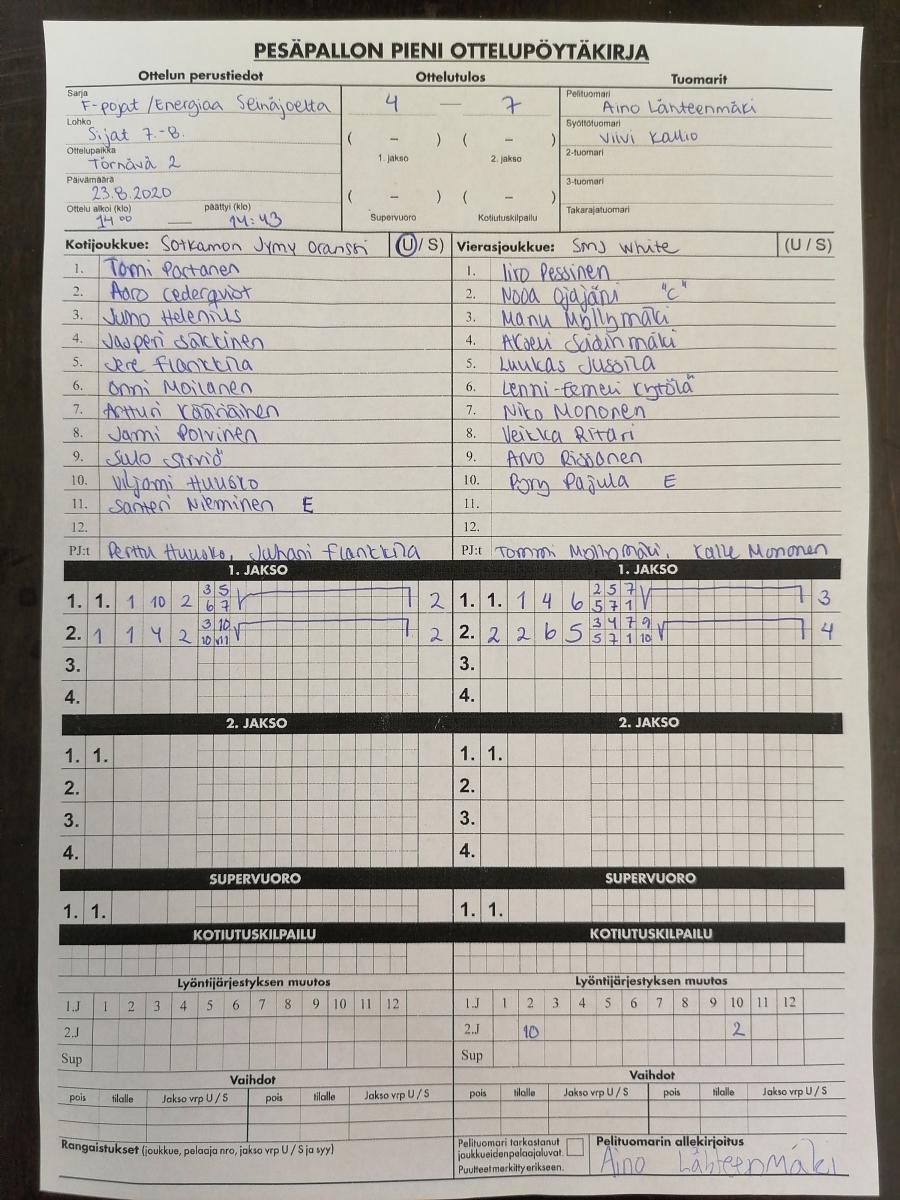 PESÄPALLON PIENI OTTELUPÖYTÄKIRJA
Ottelun perustiedot Ottelutulos Tuomarit
Sarja
F-pojat /Energiaa Seinäjoelta
Lohko
Sijat 7.-8.
Ottelupaikka
Törnävä 2
Päivämäärä
23.8.2020
Ottelu alkoi (klo) päättyi (klo)
14 00 — 14:43
4 — 7
( – ) ( – )
1. jakso 2. jakso
( – ) ( – )
Supervuoro Kotiutuskilpailu
Pelituomari
Aino Lähteenmäki
Syöttötuomari
Viivi Kallio
2-tuomari
3-tuomari
Takarajatuomari
Kotijoukkue: Sotkamon Jymy oranssi (U/ S)
1. Tomi Partanen
2. Aaro Cederqvist
3. Juho Helenius
4. Jasperi Säkkinen
5. Jere Flankkila
6. Onni Moilanen
7. Artturi Kääriäinen
8. Jami Polvinen
9. Sulo Sirviö
10. Viljami Huusko
11. Santeri Nieminen E
12.
PJ:t Perttu Huusko, Juhani Flankkila
Vierasjoukkue: SMJ White (U / S)
1. Iiro Pessinen
2. Nooa Ojajärvi "C"
3. Manu Möllymäki
4. Akseli Saidinmäki
5. Luukas Jussila
6. Lenni-Eemeli Kytölä
7. Niko Mononen
8. Veikka Ritari
9. Arvo Rissanen
10. Pajula E
11.
12.
PJ:t Tommi Möllymäki, Kalle Mononen
1. JAKSO 1. JAKSO
1. 1. 1 10 2 3 5 2
6 7
2. 1 1 4 2 3 10 2
10 11
3.
4.
1. 1. 1 4 6 2 5 7 3
5 7 1
2. 2 2 6 5 3 4 7 9 4
5 7 1 10
3.
4.
2. JAKSO 2. JAKSO
1. 1. 1. 1.
2. 2.
3. 3.
4. 4.
SUPERVUORO SUPERVUORO
1. 1. 1. 1.
KOTIUTUSKILPAILU KOTIUTUSKILPAILU
Lyöntijärjestyksen muutos Lyöntijärjestyksen muutos
1.J 1 2 3 4 5 6 7 8 9 10 11 12 1.J 1 2 3 4 5 6 7 8 9 10 11 12
2.J 2.J 10 2
Sup Sup
Vaihdot Vaihdot
pois tilalle Jakso vrp U / S pois tilalle Jakso vrp U / S pois tilalle Jakso vrp U / S pois tilalle Jakso vrp U / S
Rangaistukset (joukkue, pelaaja nro, jakso vrp U / S ja syy)
Pelituomari tarkastanut
joukkueidenpelaajaluvat.
Puutteet merkitty erikseen.
Pelituomarin allekirjoitus
Aino Lähteenmäki